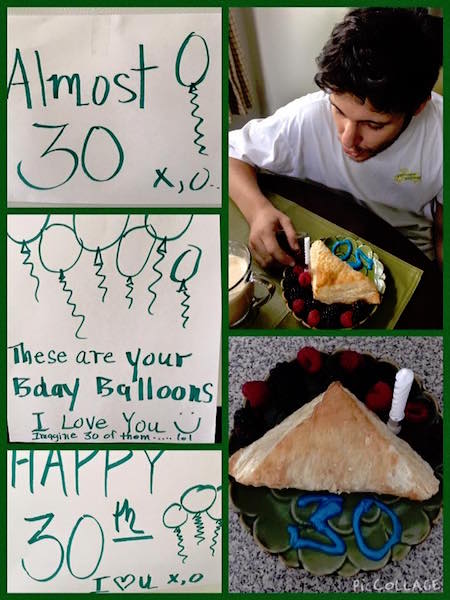 Almost
30
x,o..
These are your
Bday Balloons
I Love You
Imagine 30 of them..... lol
HAPPY
30th
I ♡ u x,o
30
30
PIC COLLAGE